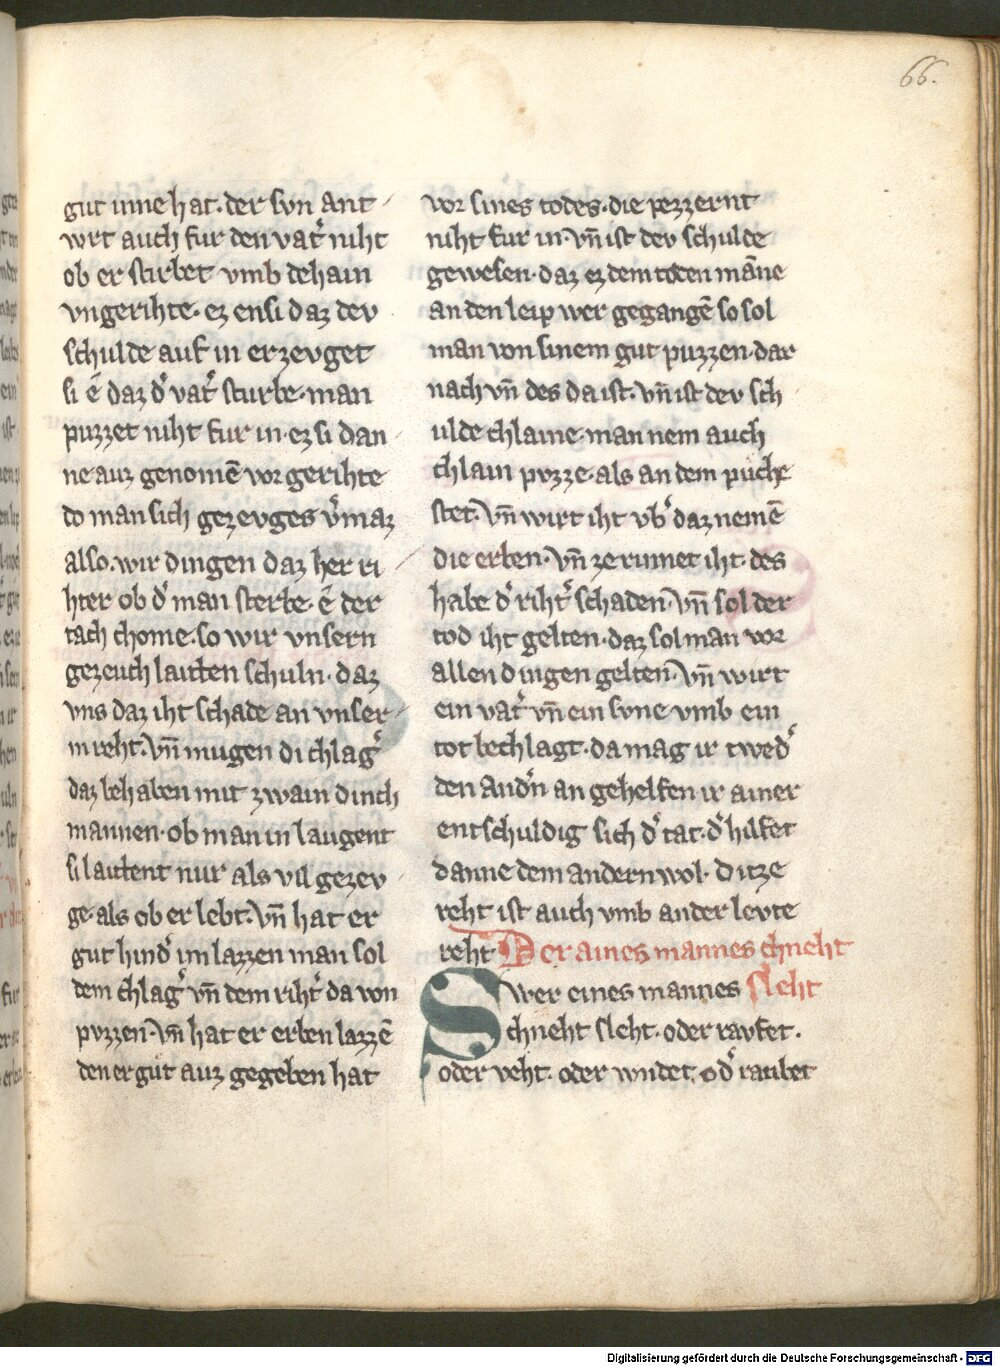 66.
gut inne hat. der svn ant
wrt auch fur den vat͛ niht
ob er stirbet vmb dehain
vngerihte. ez ensi daz dev
schulde auf in erzevget
si ê daz d͛ vat͛ sturbe. man
puzzet niht fur in. ez si dan
ne auz genomē vor gerihte
do man sich gezevges v͛maz
also. wir dingen daz her ri
hter ob d͛ man sterbe. ê der
tach chome. so wir vnsern
gezeuch laitten schuln. daz
vns daz iht schade an vnser
m reht. vn̄ mugen di chlag͛
daz behaben mit zwain dinch
mannen. ob man in laugent
si laitent nur als vil gezev
ge. als ob er lebt. vn̄ hat er
gut hind͛ im lazzen man sol
dem chlag͛ vn̄ dem riht͛ da von
pvzzen. vn̄ hat er erben lazzē
den er gut auz gegeben hat
vor sines todes. die pezzernt
niht fur in. vn̄ ist dev schulde
gewesen. daz ez dem toten māne
an den leip wer gegangē so sol
man von sinem gut puzzen. dar
nach vn̄ des da ist. vn̄ ist dev sch
ulde chlaine. man nem auch
chlain pvzze. als an dem puche
stet. vn̄ wirt iht vb͛ daz nemē
die erben. vn̄ ze rinnet iht. des
habe d͛ riht͛ schaden. vn̄ sol der
tod iht gelten. daz sol man vor
allen dingen gelten. vn̄ wirt
ein vat͛ vn̄ ein svne vmb ein
tot bechlagt. da mag ir twed͛
den and͛n an gehelfen ir ainer
entschuldig sich d͛ tat. d͛ hilfet
danne dem andern wol. Ditze
reht ist auch vmb ander levte
reht Der aines mannes chneht
Swer eines mannes sleht
chneht sleht. oder raufet.
oder veht. oder wndet. od͛ raubet
Digitalisierung gefördert durch die Deutsche Forschungsgemeinschaft - DFG